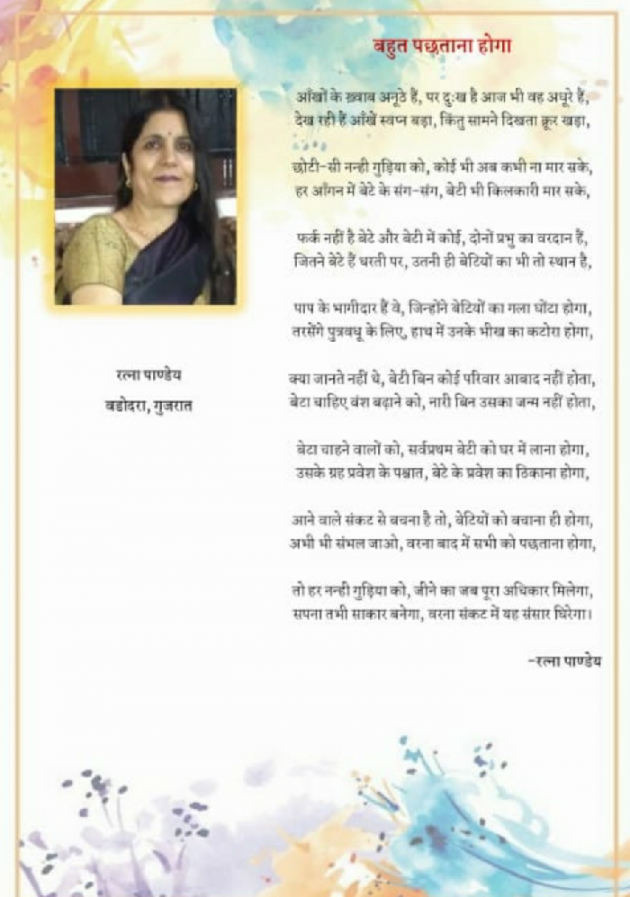 बहुत पछताना होगा
आँखों के ख़्वाब अनूठे हैं, पर दुःख है आज भी वह अधूरे हैं,
देख रही हैं आँखें स्वप्न बड़ा, किंतु सामने दिखता क्रूर खड़ा,
छोटी-सी नन्ही गुड़िया को, कोई भी अब कभी ना मार सके,
हर आँगन में बेटे के संग-संग, बेटी भी किलकारी मार सके,
फर्क नहीं है बेटे और बेटी में कोई, दोनों प्रभु का वरदान हैं,
जितने बेटे हैं धरती पर, उतनी ही बेटियों का भी तो स्थान है,
पाप के भागीदार हैं वे, जिन्होंने बेटियों का गला घोंटा होगा,
तरसेंगे पुत्रवधू के लिए, हाथ में उनके भीख का कटोरा होगा,
क्या जानते नहीं थे, बेटी बिन कोई परिवार आबाद नहीं होता,
बेटा चाहिए वंश बढ़ाने को, नारी बिन उसका जन्म नहीं होता,
बेटा चाहने वालों को, सर्वप्रथम बेटी को घर में लाना होगा,
उसके ग्रह प्रवेश के पश्चात, बेटे के प्रवेश का ठिकाना होगा,
आने वाले संकट से बचना है तो, बेटियों को बचाना ही होगा,
अभी भी संभल जाओ, वरना बाद में सभी को पछताना होगा,
तो हर नन्ही गुड़िया को, जीने का जब पूरा अधिकार मिलेगा,
सपना तभी साकार बनेगा, वरना संकट में यह संसार घिरेगा।
-रत्ना पाण्डेय
रत्ना पाण्डेय
वडोदरा, गुजरात